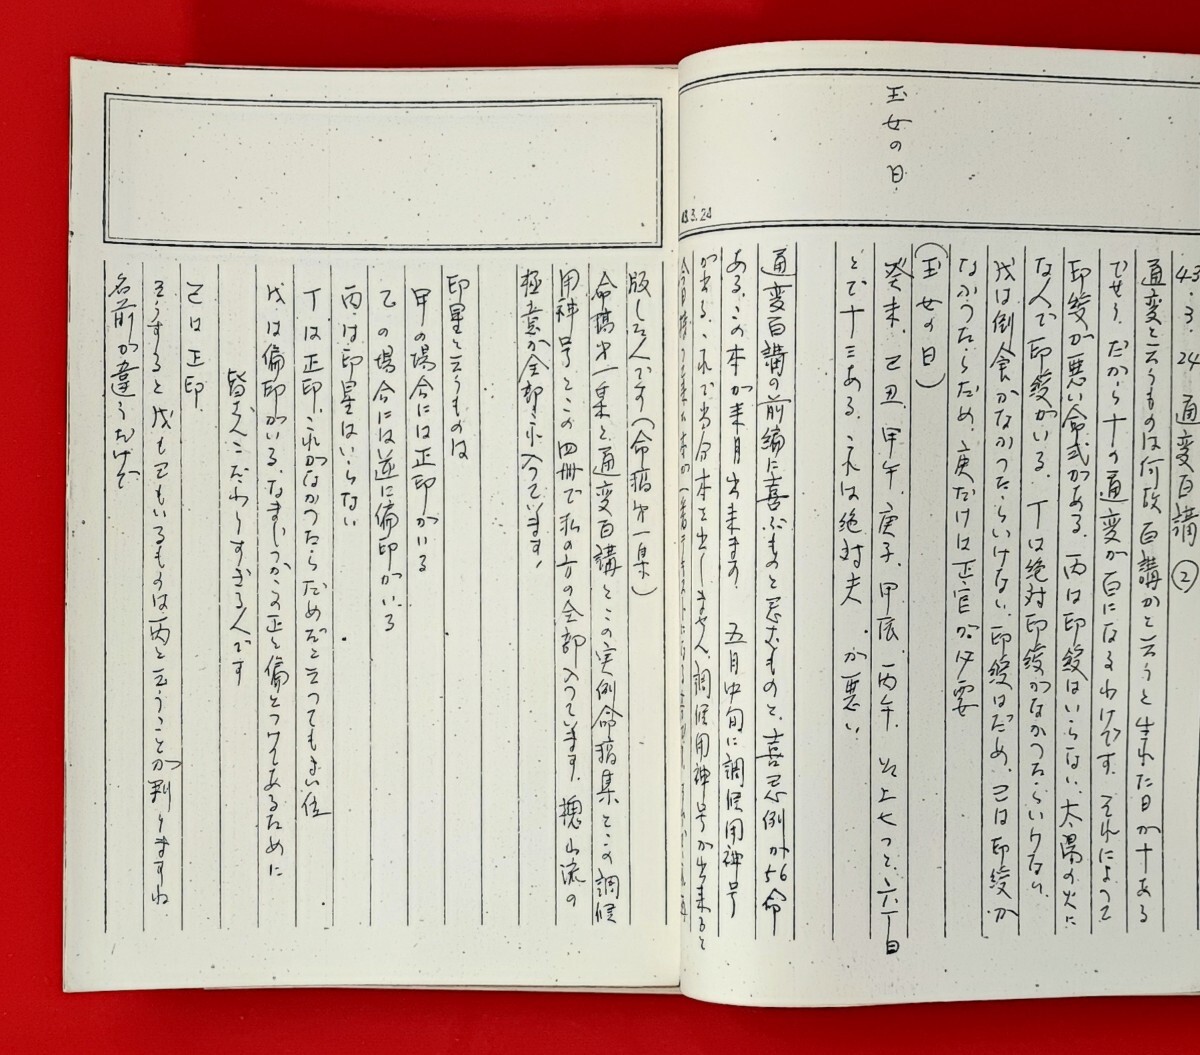 玉女の日
43.3.24
43・3・24 通変百講②
通変と云うものは何故百講かと云うと生れた日が十ある
でせう。だから十の通変が百になるわけです。それによって
印綬が悪い命式がある。丙は印綬はいらない。太陽の火に
な人で印綬がいる。丁は絶対印綬がなかったらいけない
戊は倒食がなかったらいけない。印綬はだめ、己は印綬が
なかったらだめ、庚だけは正官が必要
(玉女の日)
癸未、己丑、甲午、庚子、甲辰、丙午、以上七つと六丁日
とで十三ある。これは絶対夫が悪い
通変百講の前編に喜ぶものと忌むものと、喜忌例が56命
ある。この本が来月出来ます。五月中旬に調候用神号
が出る。これで当分本を出しません、調候用神号が出来ると
版した人です(命稿第一集)
命稿第一集と通変百講とこの実例命稿集とこの調候
用神号とこの四冊で私の方の全部入っています。揔山流の
極意が全部これ入っています。
印星と云うものは
甲の場合には正印がいる
乙の場合には逆に偏印がいる
丙は印星はいらない
丁は正印、これがなかったらだめだと云ってもよい位
戊は偏印がいる。なまじっかこの正と偏とつけてあるために
皆さんこだわりすぎる人です
己は正印
そうすると戊も己もいるものは丙と云うことが判りますね
名前が違うだけで